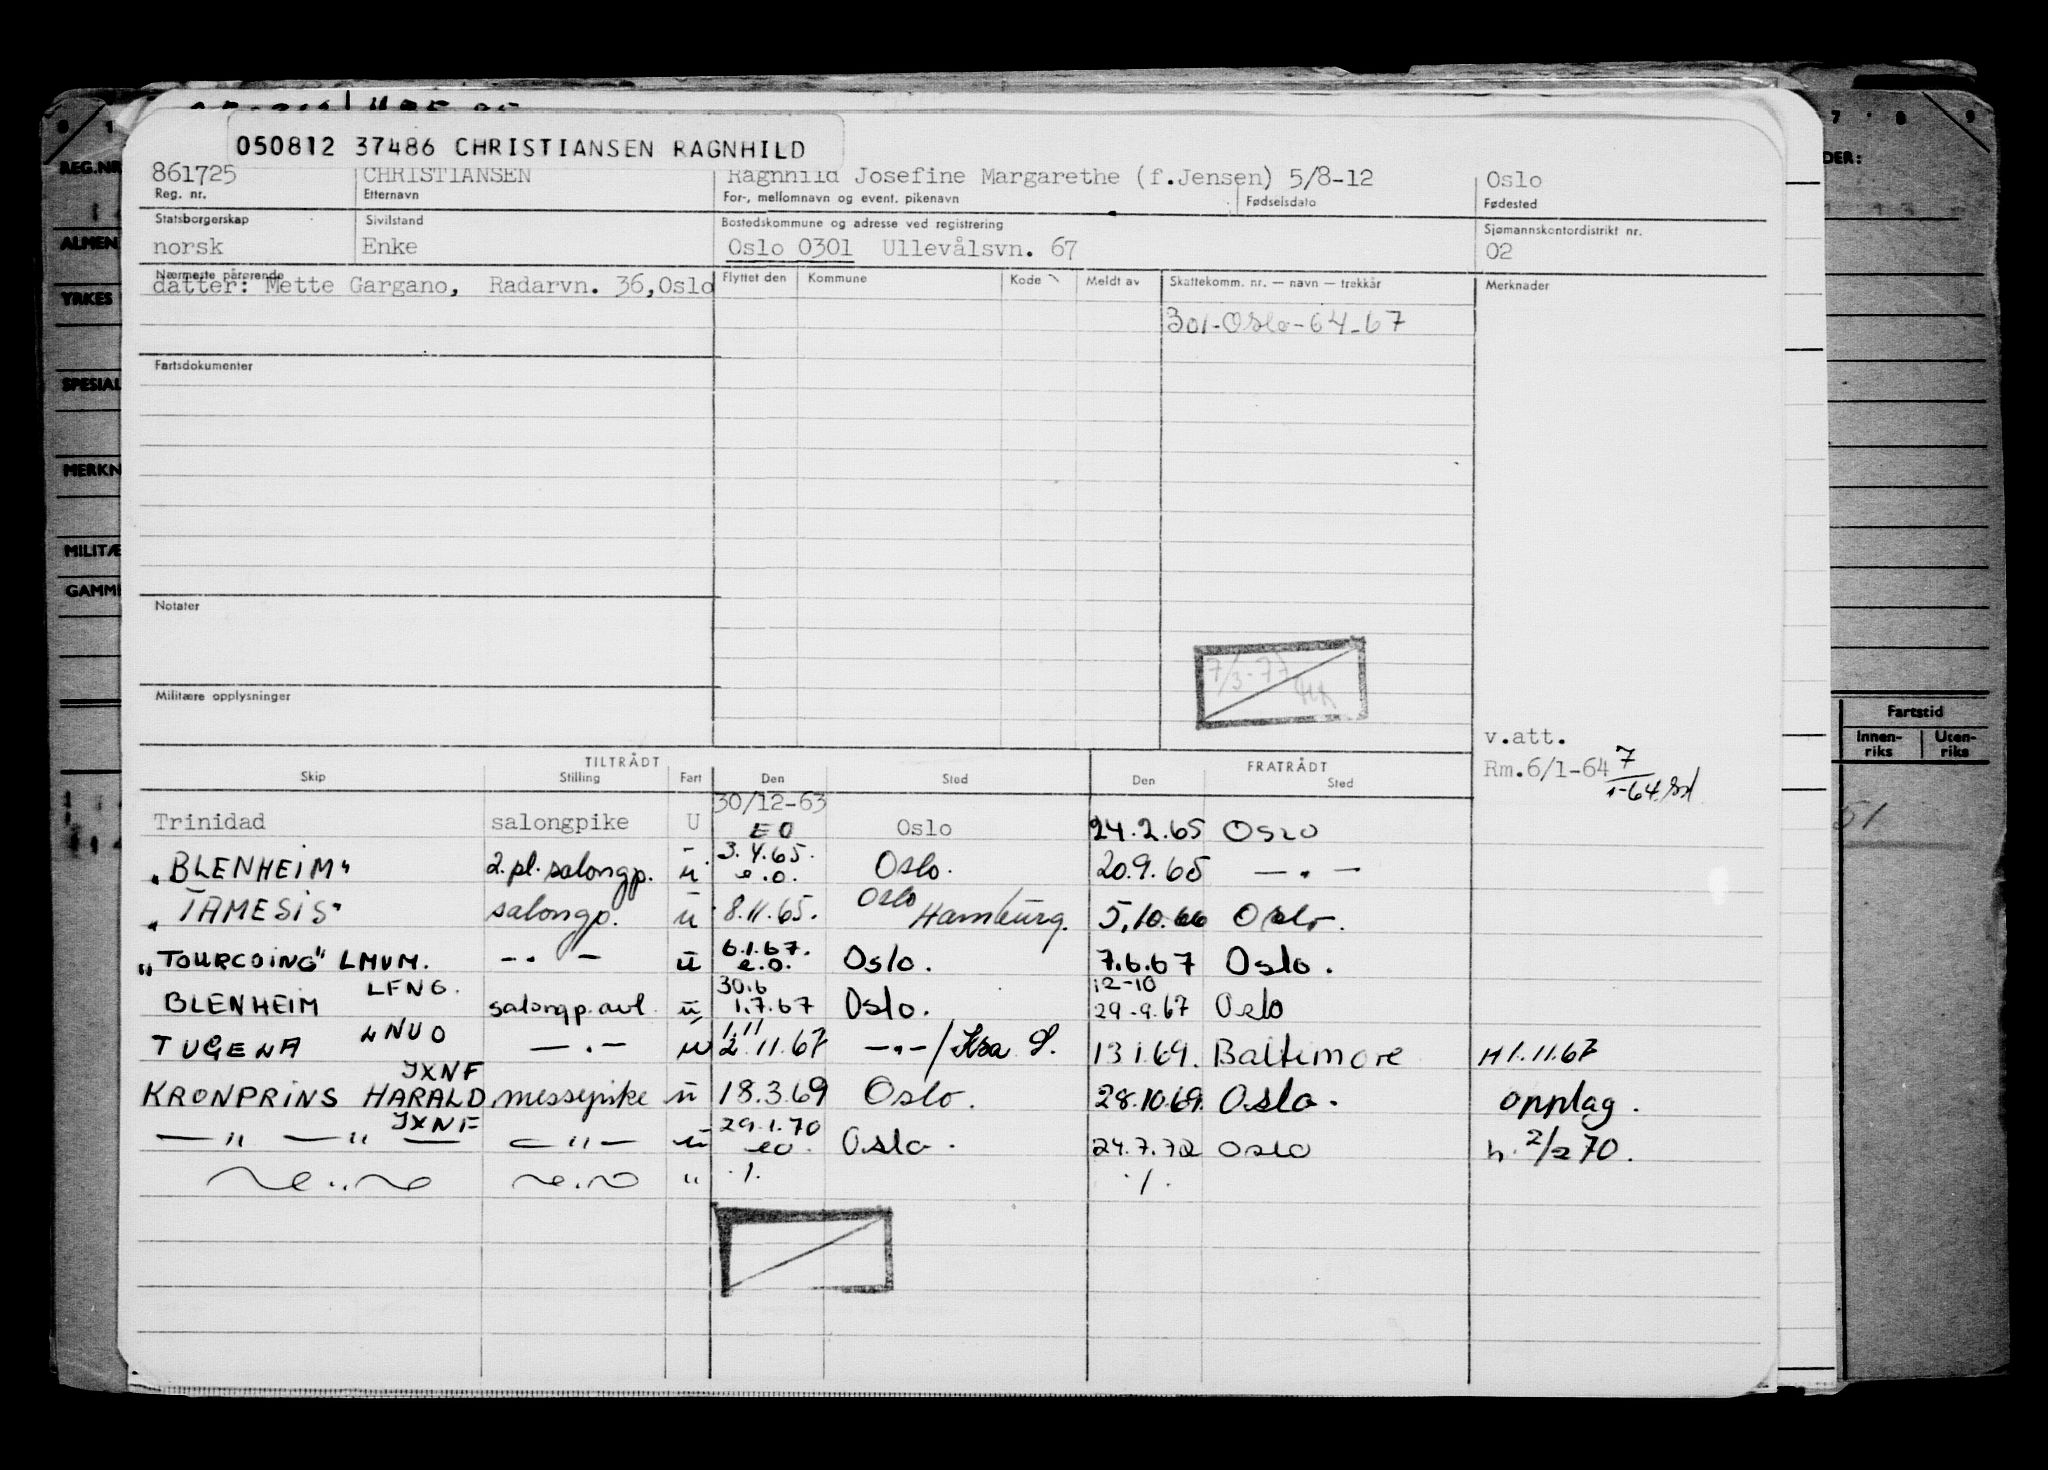 050812 37486 CHRISTIANSEN RAGNHILD
861725 CHRISTIANSEN Ragnhild Josefine Margarethe (f.Jensen) 5/8-12 Oslo
Reg. nr. Etternavn For-, mellomnavn og event. pikenavn Fødselsdato Fødested
Statsborgerskap Sivilstand Bostedskommune og adresse ved registrering Sjømannskontordistrikt nr.
norsk Enke Oslo 0301 Ullevålsvn. 67 02
Nærmeste pårørende Flyttet den Kommune Kode Meldt av Skattekomm. nr. — navn — trekkår Merknader
datter: Mette Gargano, Radarvn. 36,Oslo
301-Oslo-64-67
Fartsdokumenter
Notater
7/3-77
Militære opplysninger
v.att.
Rm.6/1-64 7/1-64
TILTRÅDT FRATRÅDT
Skip Stilling Fart Den Sted Den Sted
30/12-63
Trinidad salongpike U EO Oslo 24.2.65 Oslo
3.4.65.
"BLENHEIM" 2.pl.salongp. u e.o. Oslo. 20.9.65 — . —
"TAMESIS" salongp. u 8.11.65. Oslo Hamburg. 5.10.66 Oslo.
6.1.67.
"TOURCOING" LMVM. — . — u e.o. Oslo. 7.6.67 Oslo.
LFNG. 30.6 12-10
BLENHEIM salongp.avl. u 1.7.67 Oslo. 29-9.67 Oslo
LNUO 1.11
TUGENA — . — u 2.11.67 — . — / Kra S. 13.1.69. Baltimore H1.11.67
JXNF
KRONPRINS HARALD messepike u 18.3.69 Oslo. 28.10.69. Oslo. opplag.
JXNF 29.1.70
— " — " — — " — u eo. Oslo. 24.7.72 Oslo h. 2/2 70.
" ./. ./.
REG.NR
ALMEN
YRKES
SPESIAL
MERKN
MILITÆ
GAMM
7 8 9
DER:
Fartstid
Innen-riks Uten-riks
51